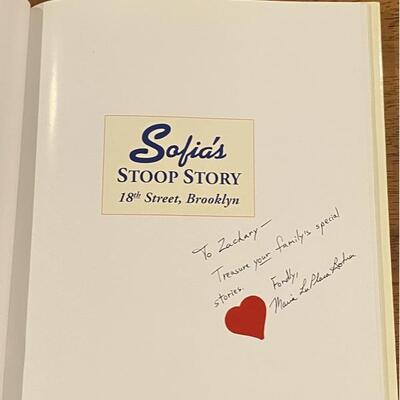 Sofia's
STOOP STORY
18th Street, Brooklyn
To Zachary—
Treasure your family's special
stories.
Fondly,
Maria